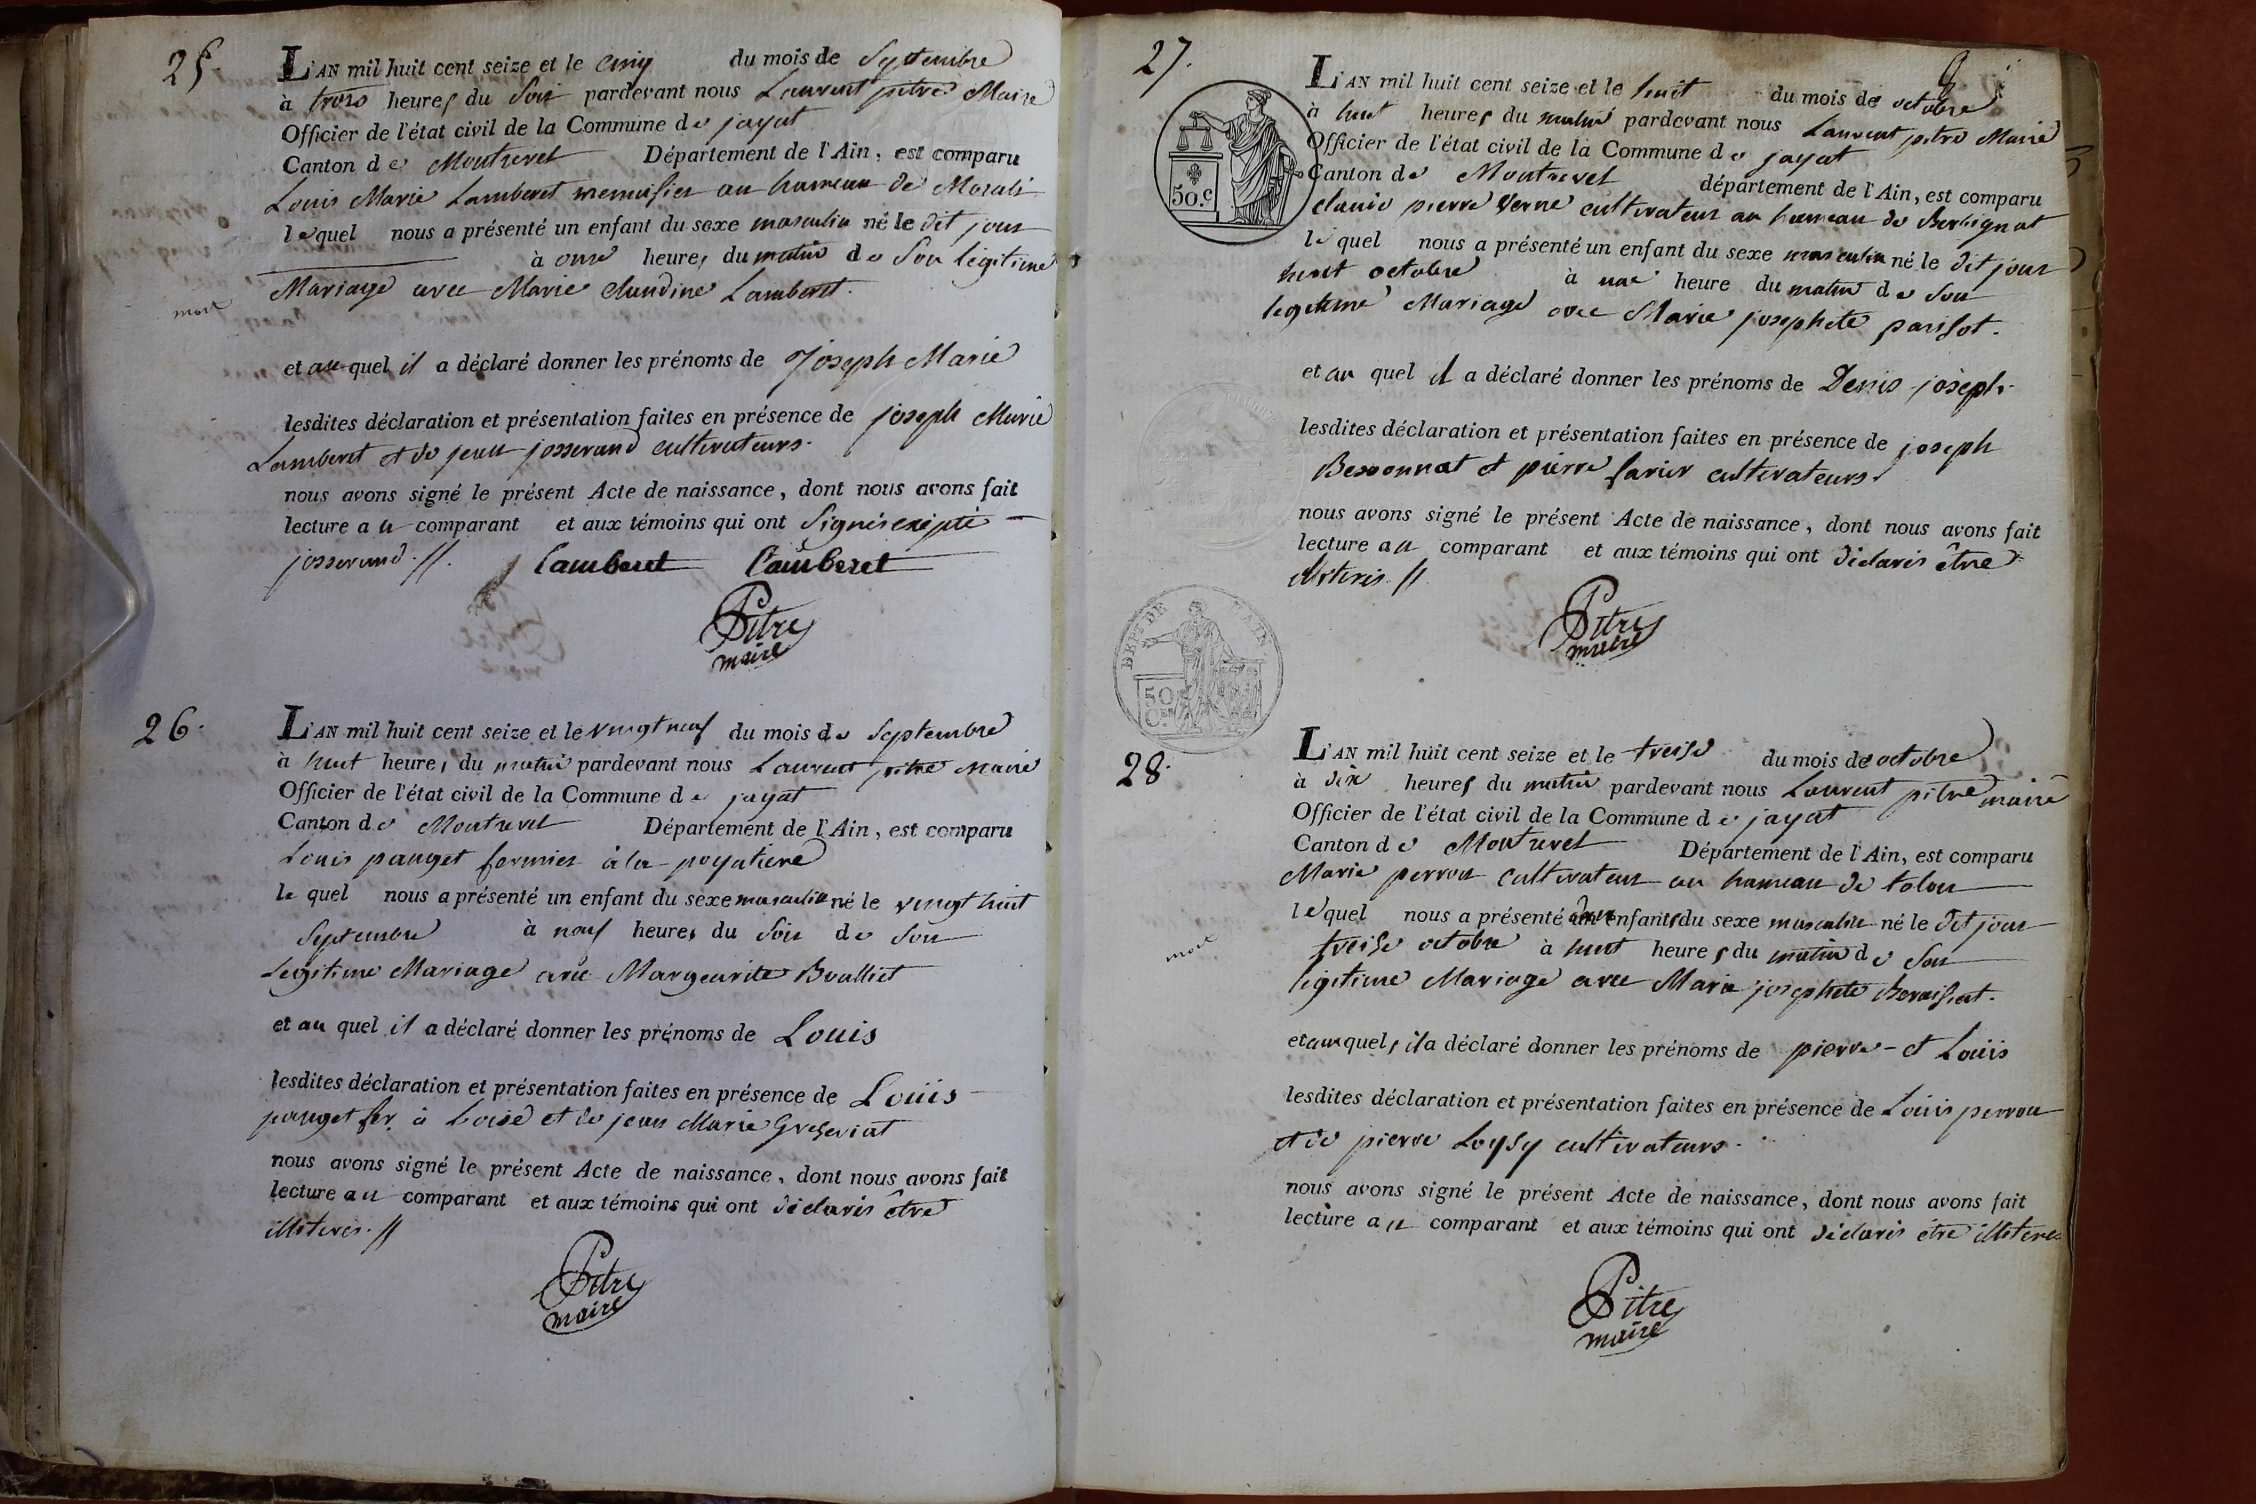 25
L'AN mil huit cent seize et le cinq du mois de Septembre
à trois heures du Soir pardevant nous Laurent pitre Maire
Officier de l'état civil de la Commune de jayat
Canton de Montrevel Département de l'Ain, est comparu
Louis Marie Lamberet menuisier au hameau de Morali
lequel nous a présenté un enfant du sexe masculin né le dit jour
à onze heures du matin de Son légitime
Mariage avec Marie claudine Lamberet.
mort
et au quel il a déclaré donner les prénoms de Joseph Marie
lesdites déclaration et présentation faites en présence de joseph Marie
Lamberet et de jean josserand cultivateurs.
nous avons signé le présent Acte de naissance, dont nous avons fait
lecture au comparant et aux témoins qui ont Signés excepté
josserand.//. Lamberet Lamberet
Pitre
maire
26.
L'AN mil huit cent seize et le vingt neuf du mois de Septembre
à huit heures du matin pardevant nous Laurent pitre Maire
Officier de l'état civil de la Commune de jayat
Canton de Montrevel Département de l'Ain, est comparu
Louis pauget fermier à la poyatiere
le quel nous a présenté un enfant du sexe masculin né le vingt huit
Septembre à neuf heures du Soir de Son
Legitime Mariage avec Margeurite Bvalliet
et au quel il a déclaré donner les prénoms de Louis
lesdites déclaration et présentation faites en présence de Louis
pauget fer. à et de jean Marie
nous avons signé le présent Acte de naissance, dont nous avons fait
lecture au comparant et aux témoins qui ont déclarés être
illiterés.//
Pitre
maire
27.
50.c
L'AN mil huit cent seize et le huit du mois de octobre
à huit heures du matin pardevant nous Laurent pitre Maire
Officier de l'état civil de la Commune de jayat
Canton de Montrevel département de l'Ain, est comparu
claude pierre Verne cultivateur au hameau de
le quel nous a présenté un enfant du sexe masculin né le dit jour
huit octobre à une heure du matin de Son
legitime Mariage avec Marie josephete parisot.
et au quel il a déclaré donner les prénoms de Denis joseph.
lesdites déclaration et présentation faites en présence de joseph
Bessonnat et pierre farier cultivateurs.
nous avons signé le présent Acte de naissance, dont nous avons fait
lecture au comparant et aux témoins qui ont déclarés être
illiterés.//
Pitre
maire
DEPT DE L'AIN
50
Cen
28.
L'AN mil huit cent seize et le treise du mois de octobre
à dix heures du matin pardevant nous Laurent pitre maire
Officier de l'état civil de la Commune de jayat
Canton de Montrevel Département de l'Ain, est comparu
Marie perron cultivateur au hameau de talon
lequel nous a présenté deux enfants du sexe masculin né le dit jour
treise octobre à huit heures du matin de Son
legitime Mariage avec Marie josephete
mort
et aux quels il a déclaré donner les prénoms de pierre - et Louis
lesdites déclaration et présentation faites en présence de Louis perron
et de pierre Loysy cultivateurs.
nous avons signé le présent Acte de naissance, dont nous avons fait
lecture au comparant et aux témoins qui ont déclarés être illiterés
Pitre
maire